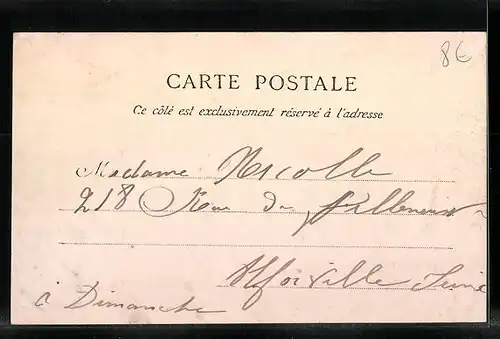 8€
CARTE POSTALE
Ce côté est exclusivement réservé à l'adresse
Madame Nicolle
218 Rue de Villeneuve
Alforville Seine
à Dimanche